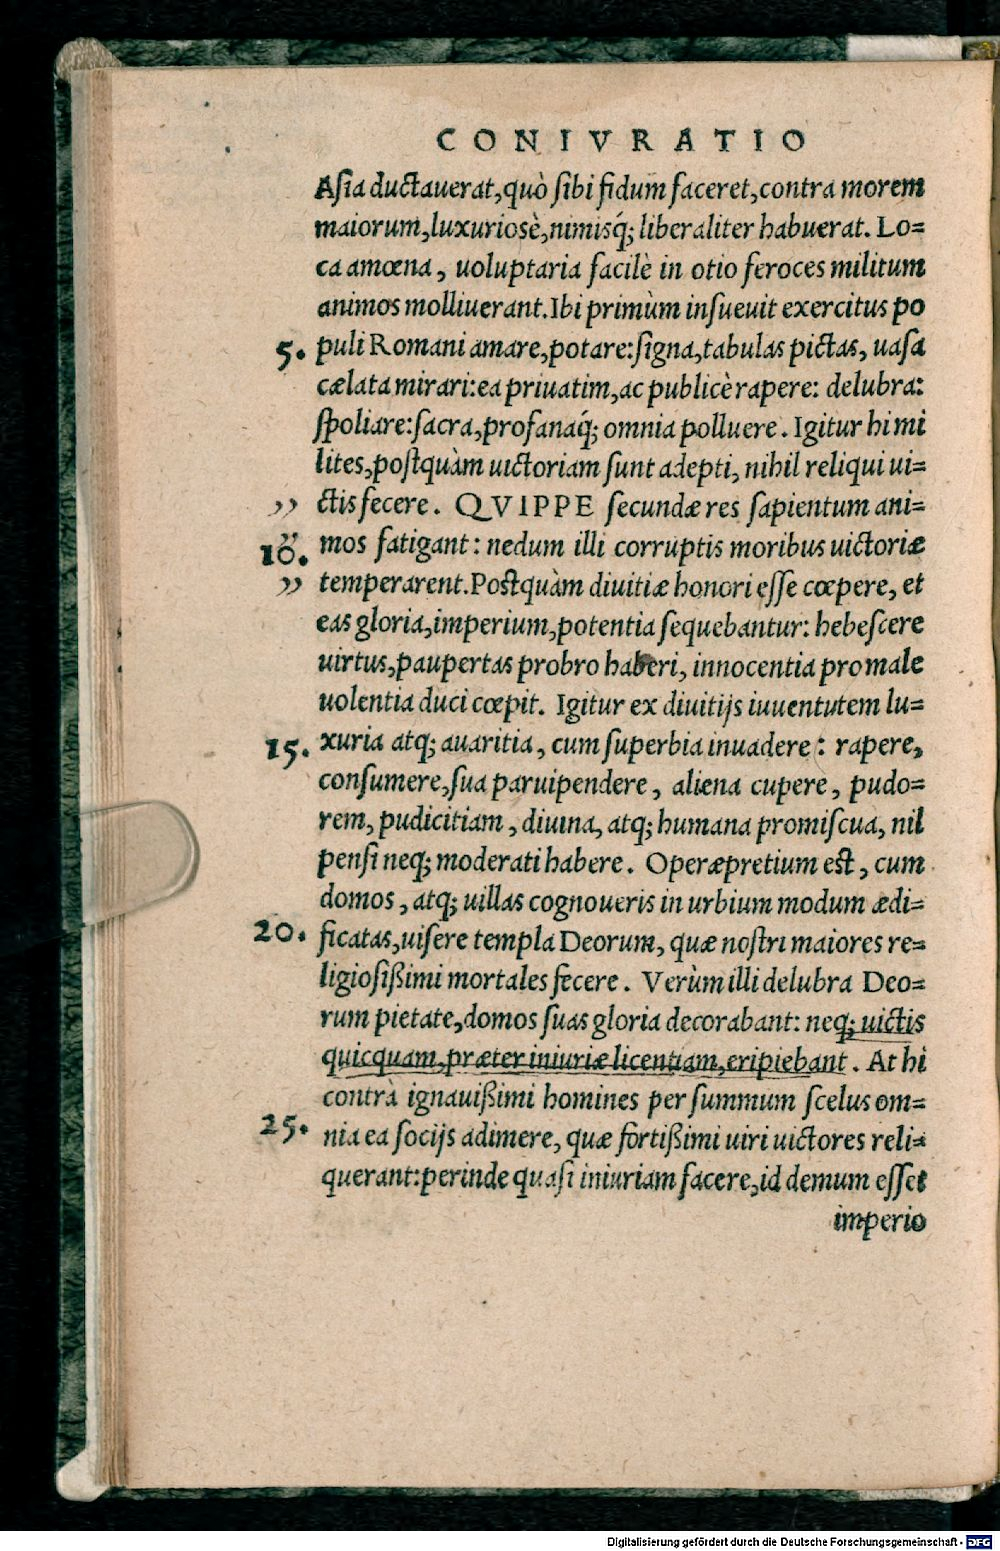 CONIVRATIO
Asia ductauerat, quò sibi fidum faceret, contra morem
maiorum, luxuriosè, nimisq́; liberaliter habuerat. Lo=
ca amœna, uoluptaria facilè in otio feroces militum
animos molliuerant. Ibi primùm insueuit exercitus po
5. puli Romani amare, potare: signa, tabulas pictas, uasa
cælata mirari: ea priuatim, ac publicè rapere: delubra:
spoliare: sacra, profanaq́; omnia polluere. Igitur hi mi
lites, postquàm uictoriam sunt adepti, nihil reliqui ui=
,, ctis fecere. QVIPPE secundæ res sapientum ani=
10. ,, mos fatigant: nedum illi corruptis moribus uictoriæ
,, temperarent. Postquàm diuitiæ honori esse cœpere, et
eas gloria, imperium, potentia sequebantur: hebescere
uirtus, paupertas probro haberi, innocentia pro male
uolentia duci cœpit. Igitur ex diuitijs iuuentutem lu=
15. xuria atq; auaritia, cum superbia inuadere: rapere,
consumere, sua paruipendere, aliena cupere, pudo=
rem, pudicitiam, diuina, atq; humana promiscua, nil
pensi neq; moderati habere. Operæpretium est, cum
domos, atq; uillas cognoueris in urbium modum ædi=
20. ficatas, uisere templa Deorum, quæ nostri maiores re=
ligiosißimi mortales fecere. Verùm illi delubra Deo=
rum pietate, domos suas gloria decorabant: neq; uictis
quicquam, præter iniuriæ licentiam, eripiebant. At hi
contrà ignauißimi homines per summum scelus om=
25. nia ea socijs adimere, quæ fortißimi uiri uictores reli=
querant: perinde quasi iniuriam facere, id demum esset
imperio
Digitalisierung gefördert durch die Deutsche Forschungsgemeinschaft - DFG